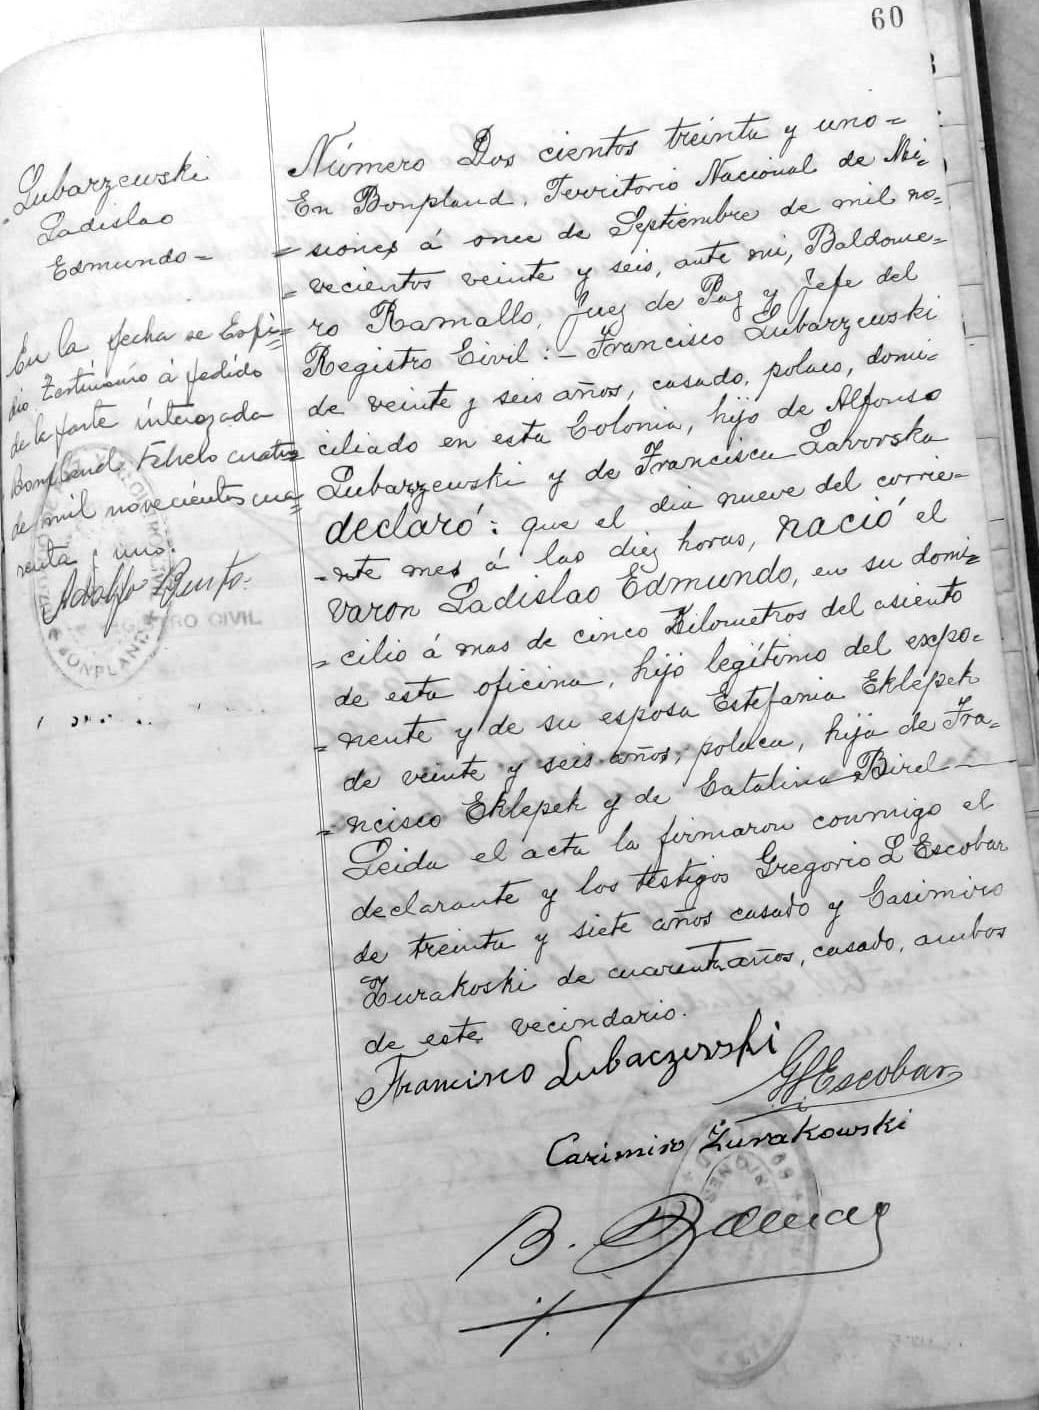 60
Lubarzewski
Ladislao
Edmundo=
En la fecha se Expi=
dio Testimonio á pedido
de la parte interezada
Bonpland Febrero cuatro
de mil novecientos cua=
renta y uno.
Adolfo
REGISTRO CIVIL
BONPLAND
Número Dos cientos treinta y uno=
En Bonpland, Territorio Nacional de Mi=
=siones á once de Septiembre de mil no=
=vecientos veinte y seis, ante mi, Baldome=
ro Ramallo, Juez de Paz y Jefe del
Registro Civil:- Francisco Lubarzewski
de veinte y seis años, casado, polaco, domi=
ciliado en esta Colonia, hijo de Alfonso
Lubarzewski y de Francisca Lavorska
declaró: que el dia nueve del corrie=
=nte mes á las diez horas, nació el
varon Ladislao Edmundo, en su domi=
=cilio á mas de cinco Kilometros del asiento
de esta oficina, hijo legítimo del expo=
=nente y de su esposa Estefania Eklepek
de veinte y seis años, polaca, hija de Fra=
=ncisco Eklepek y de Catalina Birel
Leida el acta la firmaron conmigo el
declarante y los testigos Gregorio L Escobar
de treinta y siete años casado y Casimiro
Zurakoski de cuarenta años, casado, ambos
de este vecindario.
Francisco Lubaczewski
GLEscobar
Casimiro Zurakowski
B. Ramallo